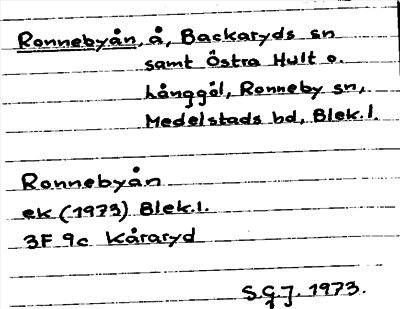 Ronnebyån, å, Backaryds sn
samt Östra Hult o.
Långgöl, Ronneby sn,
Medelstads hd, Blek.l.
Ronnebyån
ek (1973) Blek.l.
3F 9c Kåraryd
S.G.J. 1973.